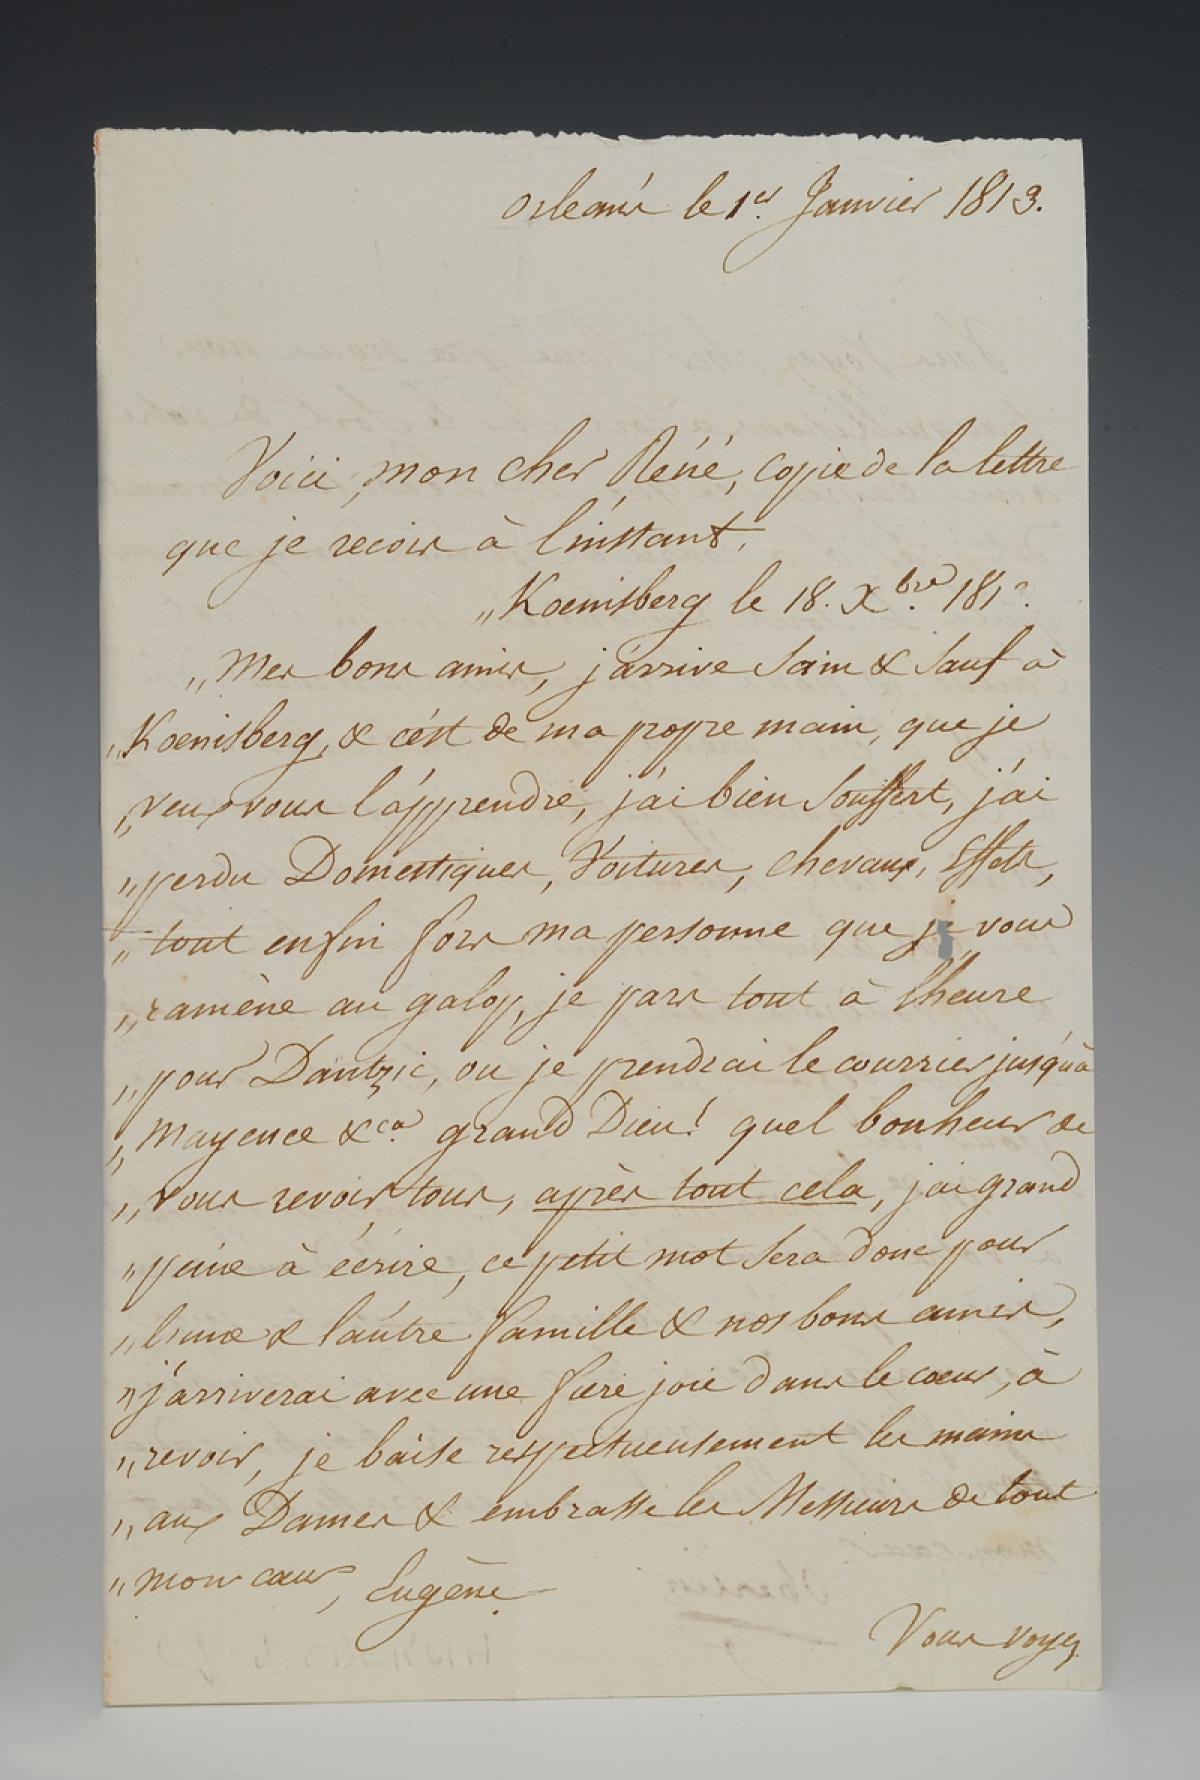 Orleans le 1er. Janvier 1813.
Voici, mon cher Réné, copie de la lettre
que je recois à l'instant.
„Koenisberg le 18. Xbre. 181
„Mes bons amis, j'arrive Sain & Sauf à
„Koenisberg, & c'est de ma propre main, que je
„veux vous l'apprendre, j'ai bien Souffert, j'ai
„perdu Domestiques, Voitures, chevaux, Effets,
„tout enfin fors ma personne que je vous
„ramène au galop, je pars tout à l'heure
„pour Dantzic, ou je prendrai le courrier jusqu'à
„Mayence &ca. grand Dieu! quel bonheur de
„vous revoir tous, après tout cela, j'ai grand
„peine à écrire, ce petit mot Sera donc pour
„l'une & l'autre famille & nos bons amis,
„j'arriverai avec une fière joie dans le coeur, à
„revoir, je baise respectueusement les mains
„aux Dames & embrasse les Messieurs de tout
„mon coeur, Eugène.
Vous voyez